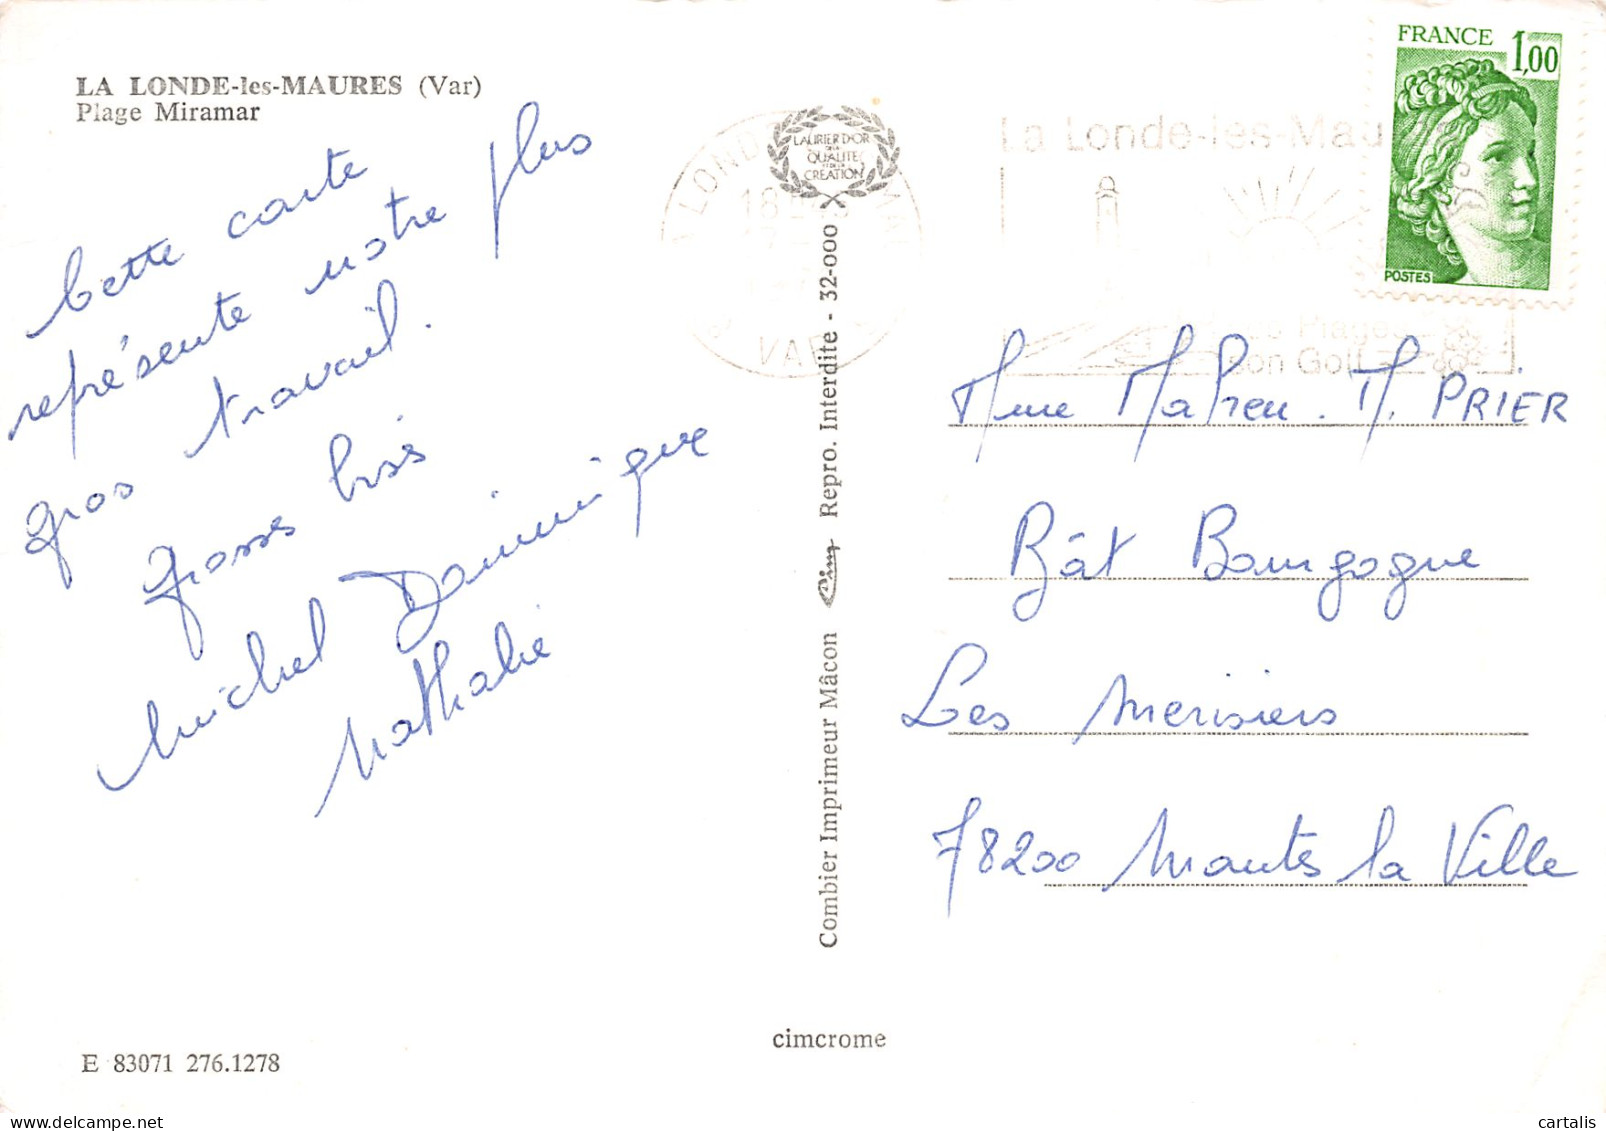 LA LONDE-les-MAURES (Var)
Plage Miramar
Cette carte
représente notre plus
gros travail.
Grosses bises
Michel Dominique
Nathalie
E 83071 276.1278
LAURIER D'OR
DE LA
QUALITE
ET DE LA
CREATION
VAR
Combier Imprimeur Mâcon Cim Repro. Interdite - 32-000
cimcrome
La Londe-les-Mau
Plages
son Golf
FRANCE 1,00
POSTES
Mme M. PRIER
Bât Bourgogne
Les Merisiers
78200 Mantes la Ville
cartalis